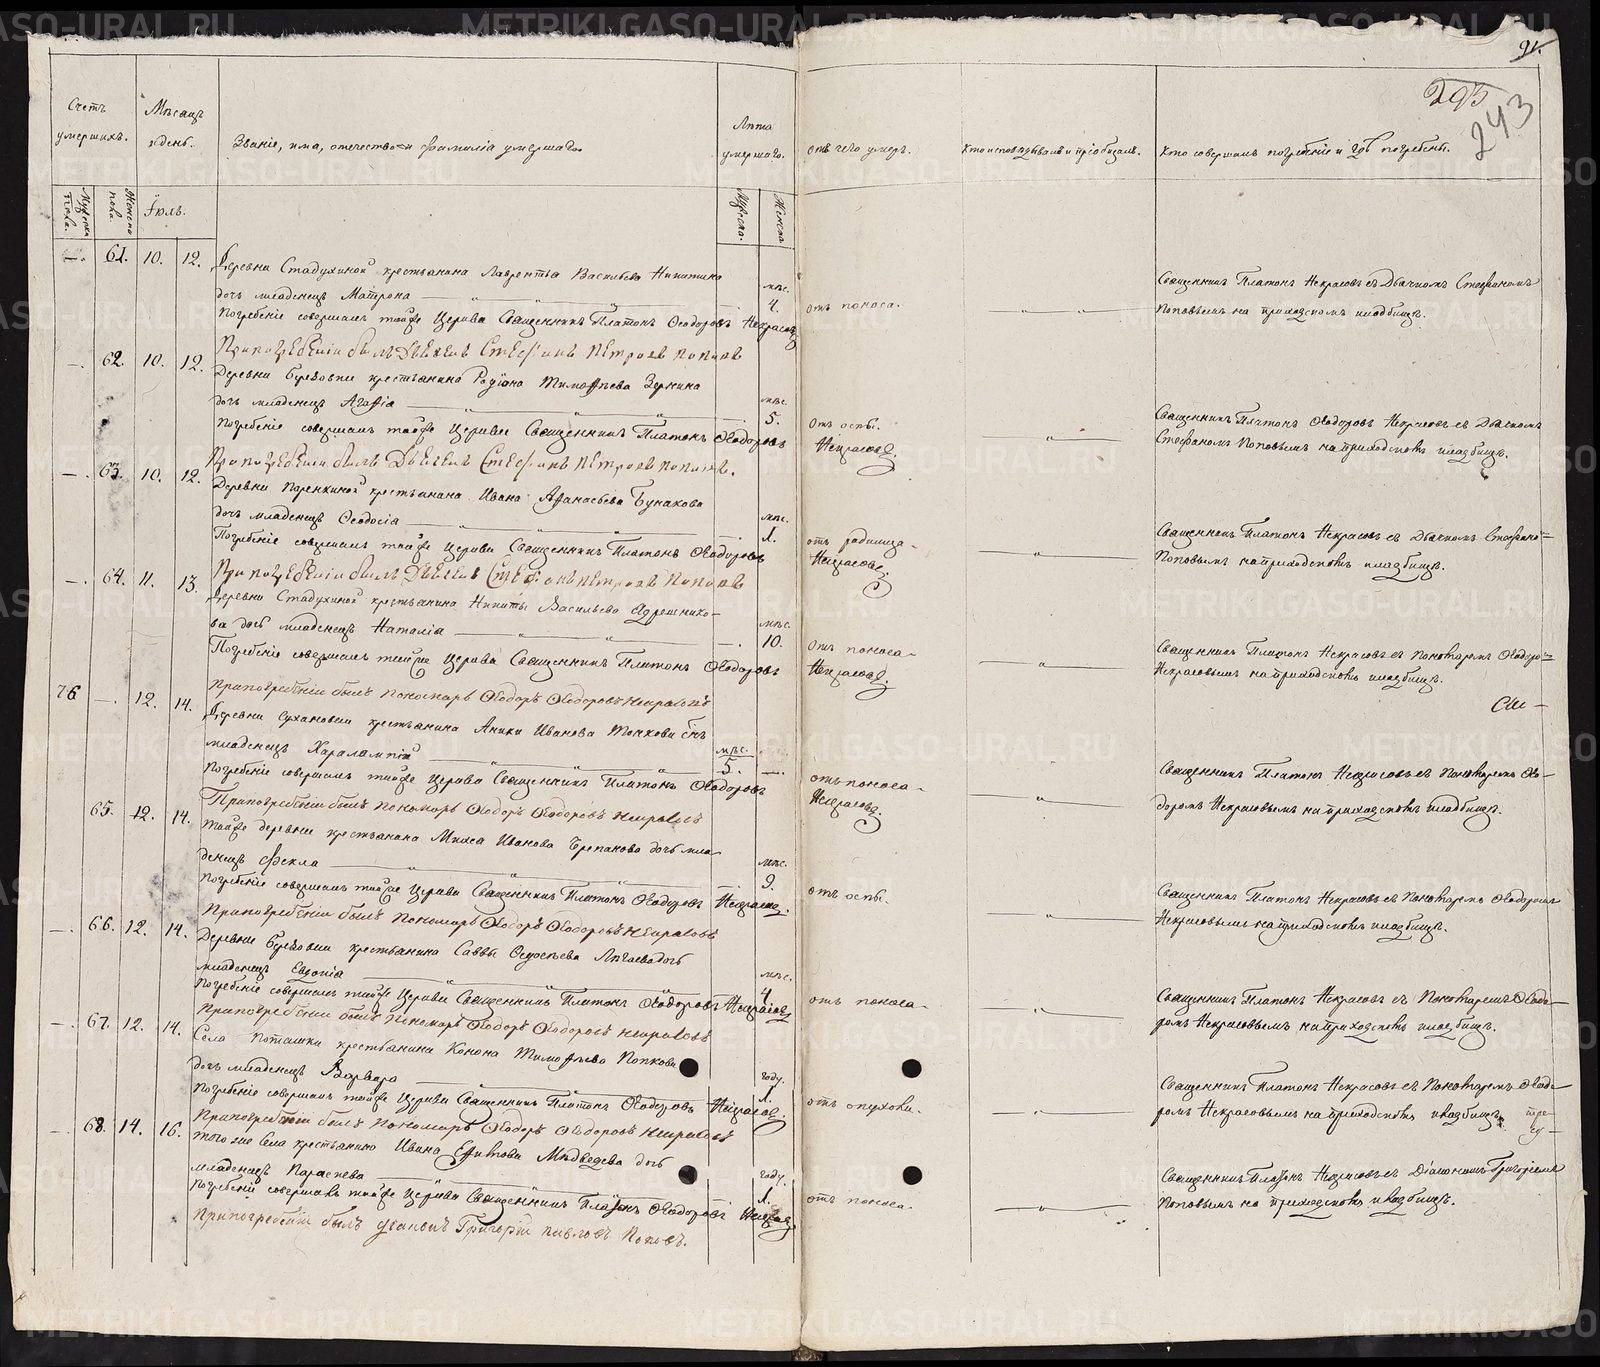 METRIKI.GASO-URAL.RU
91.
295
243
Счетъ умершихъ.
Мѣсяцъ и день.
Званіе, има, отечество и фамиліа умершаго.
Лѣта умершаго.
отъ чего умеръ.
Кто исповѣдывалъ и пріобщалъ.
Кто совершалъ погребеніе и гдѣ погребены.
Мужеска пола.
Женска пола.
Іюль.
Мужеска.
Женска
61. 10. 12. Деревни Стадухиной крестьанина Лаврентьа Васильева Никитина
дочь младенецъ Матрона мѣс. 4. отъ поноса. Священникъ Платонъ Некрасовъ съ Дьячкомъ Стефаномъ
Поповымъ на приходскомъ кладбищѣ.
Погребеніе совершалъ тоайже Церкви Священникъ Платонъ Ѳеодоровъ Некрасовъ
При погребеніи былъ Дьячекъ Стефанъ Петровъ Поповъ
62. 10. 12. Деревни крестьанина Родіона Тимофѣева Зернина
дочь младенецъ Агафіа мѣс. 5. Отъ оспы. Священникъ Платонъ Ѳеодоровъ Некрасовъ съ Дьячкомъ
Стефаномъ Поповымъ на приходскомъ кладбищѣ.
Погребеніе совершалъ тоайже Церкви Священникъ Платонъ Ѳеодоровъ Некрасовъ.
При погребеніи былъ Дьячекъ Стефанъ Петровъ Поповъ.
63. 10. 12. Деревни крестьанина Ивана Афанасьева Бунакова
дочь младенецъ Ѳеодосіа мѣс. 1. отъ родимца. Священникъ Платонъ Некрасовъ съ Дьячкомъ Стефано=
Поповымъ на приходскомъ кладбищѣ.
Погребеніе совершалъ тоайже Церкви Священникъ Платонъ Ѳеодоровъ Некрасовъ.
При погребеніи былъ Дьячекъ Стефанъ Петровъ Поповъ
64. 11. 13. Деревни Стадухиной крестьанина Никиты Васильева
дочь младенецъ Наталіа мѣс. 10. Отъ поноса. Священникъ Платонъ Некрасовъ съ Пономаремъ Ѳеодоро=
Некрасовымъ на приходскомъ кладбищѣ.
Погребеніе совершалъ тоайже Церкви Священникъ Платонъ Ѳеодоровъ Некрасовъ.
При погребеніи былъ Пономарь Ѳеодоръ Ѳеодоровъ Некрасовъ
76 12. 14. Деревни Сухановки крестьанина Аники Иванова сынъ
младенецъ Харалампій мѣс. 5. отъ поноса. Священникъ Платонъ Некрасовъ съ Пономаремъ Ѳео-
доромъ Некрасовымъ на приходскомъ кладбищѣ.
Погребеніе совершалъ тоайже Церкви Священникъ Платонъ Ѳеодоровъ Некрасовъ.
При погребеніи былъ Пономарь Ѳеодоръ Ѳеодоровъ Некрасовъ
65. 12. 14. Тойже деревни крестьанина Иванова дочь мла-
денецъ Фекла мѣс. 9. отъ оспы. Священникъ Платонъ Некрасовъ съ Пономаремъ Ѳеодоромъ
Некрасовымъ на приходскомъ кладбищѣ.
Погребеніе совершалъ тоайже Церкви Священникъ Платонъ Ѳеодоровъ Некрасовъ.
При погребеніи былъ Пономарь Ѳеодоръ Ѳеодоровъ Некрасовъ
66. 12. 14. Деревни крестьанина Саввы дочь
младенецъ Евдокіа мѣс. 4 отъ поноса. Священникъ Платонъ Некрасовъ съ Пономаремъ Ѳеодо-
ромъ Некрасовымъ на приходскомъ кладбищѣ.
Погребеніе совершалъ тоайже Церкви Священникъ Платонъ Ѳеодоровъ Некрасовъ
При погребеніи былъ Пономарь Ѳеодоръ Ѳеодоровъ Некрасовъ
67. 12. 14. Села Поташки крестьанина Конона Тимофѣева Попкова
дочь младенецъ Варвара году. 1. отъ опухоли. Священникъ Платонъ Некрасовъ съ Пономаремъ Ѳеодо-
ромъ Некрасовымъ на приходскомъ кладбищѣ.
Погребеніе совершалъ тоайже Церкви Священникъ Платонъ Ѳеодоровъ Некрасовъ.
При погребеніи былъ Пономарь Ѳеодоръ Ѳеодоровъ Некрасовъ
68. 14. 16. Того же Села крестьанина Ивана Медведева дочь
младенецъ Параскева году. 1. отъ поноса. Священникъ Платонъ Некрасовъ съ Діакономъ Григоріемъ
Поповымъ на приходскомъ кладбищѣ.
Погребеніе совершалъ тоайже Церкви Священникъ Платонъ Ѳеодоровъ Некрасовъ
При погребеніи былъ діаконъ Григорій Павловъ Поповъ.